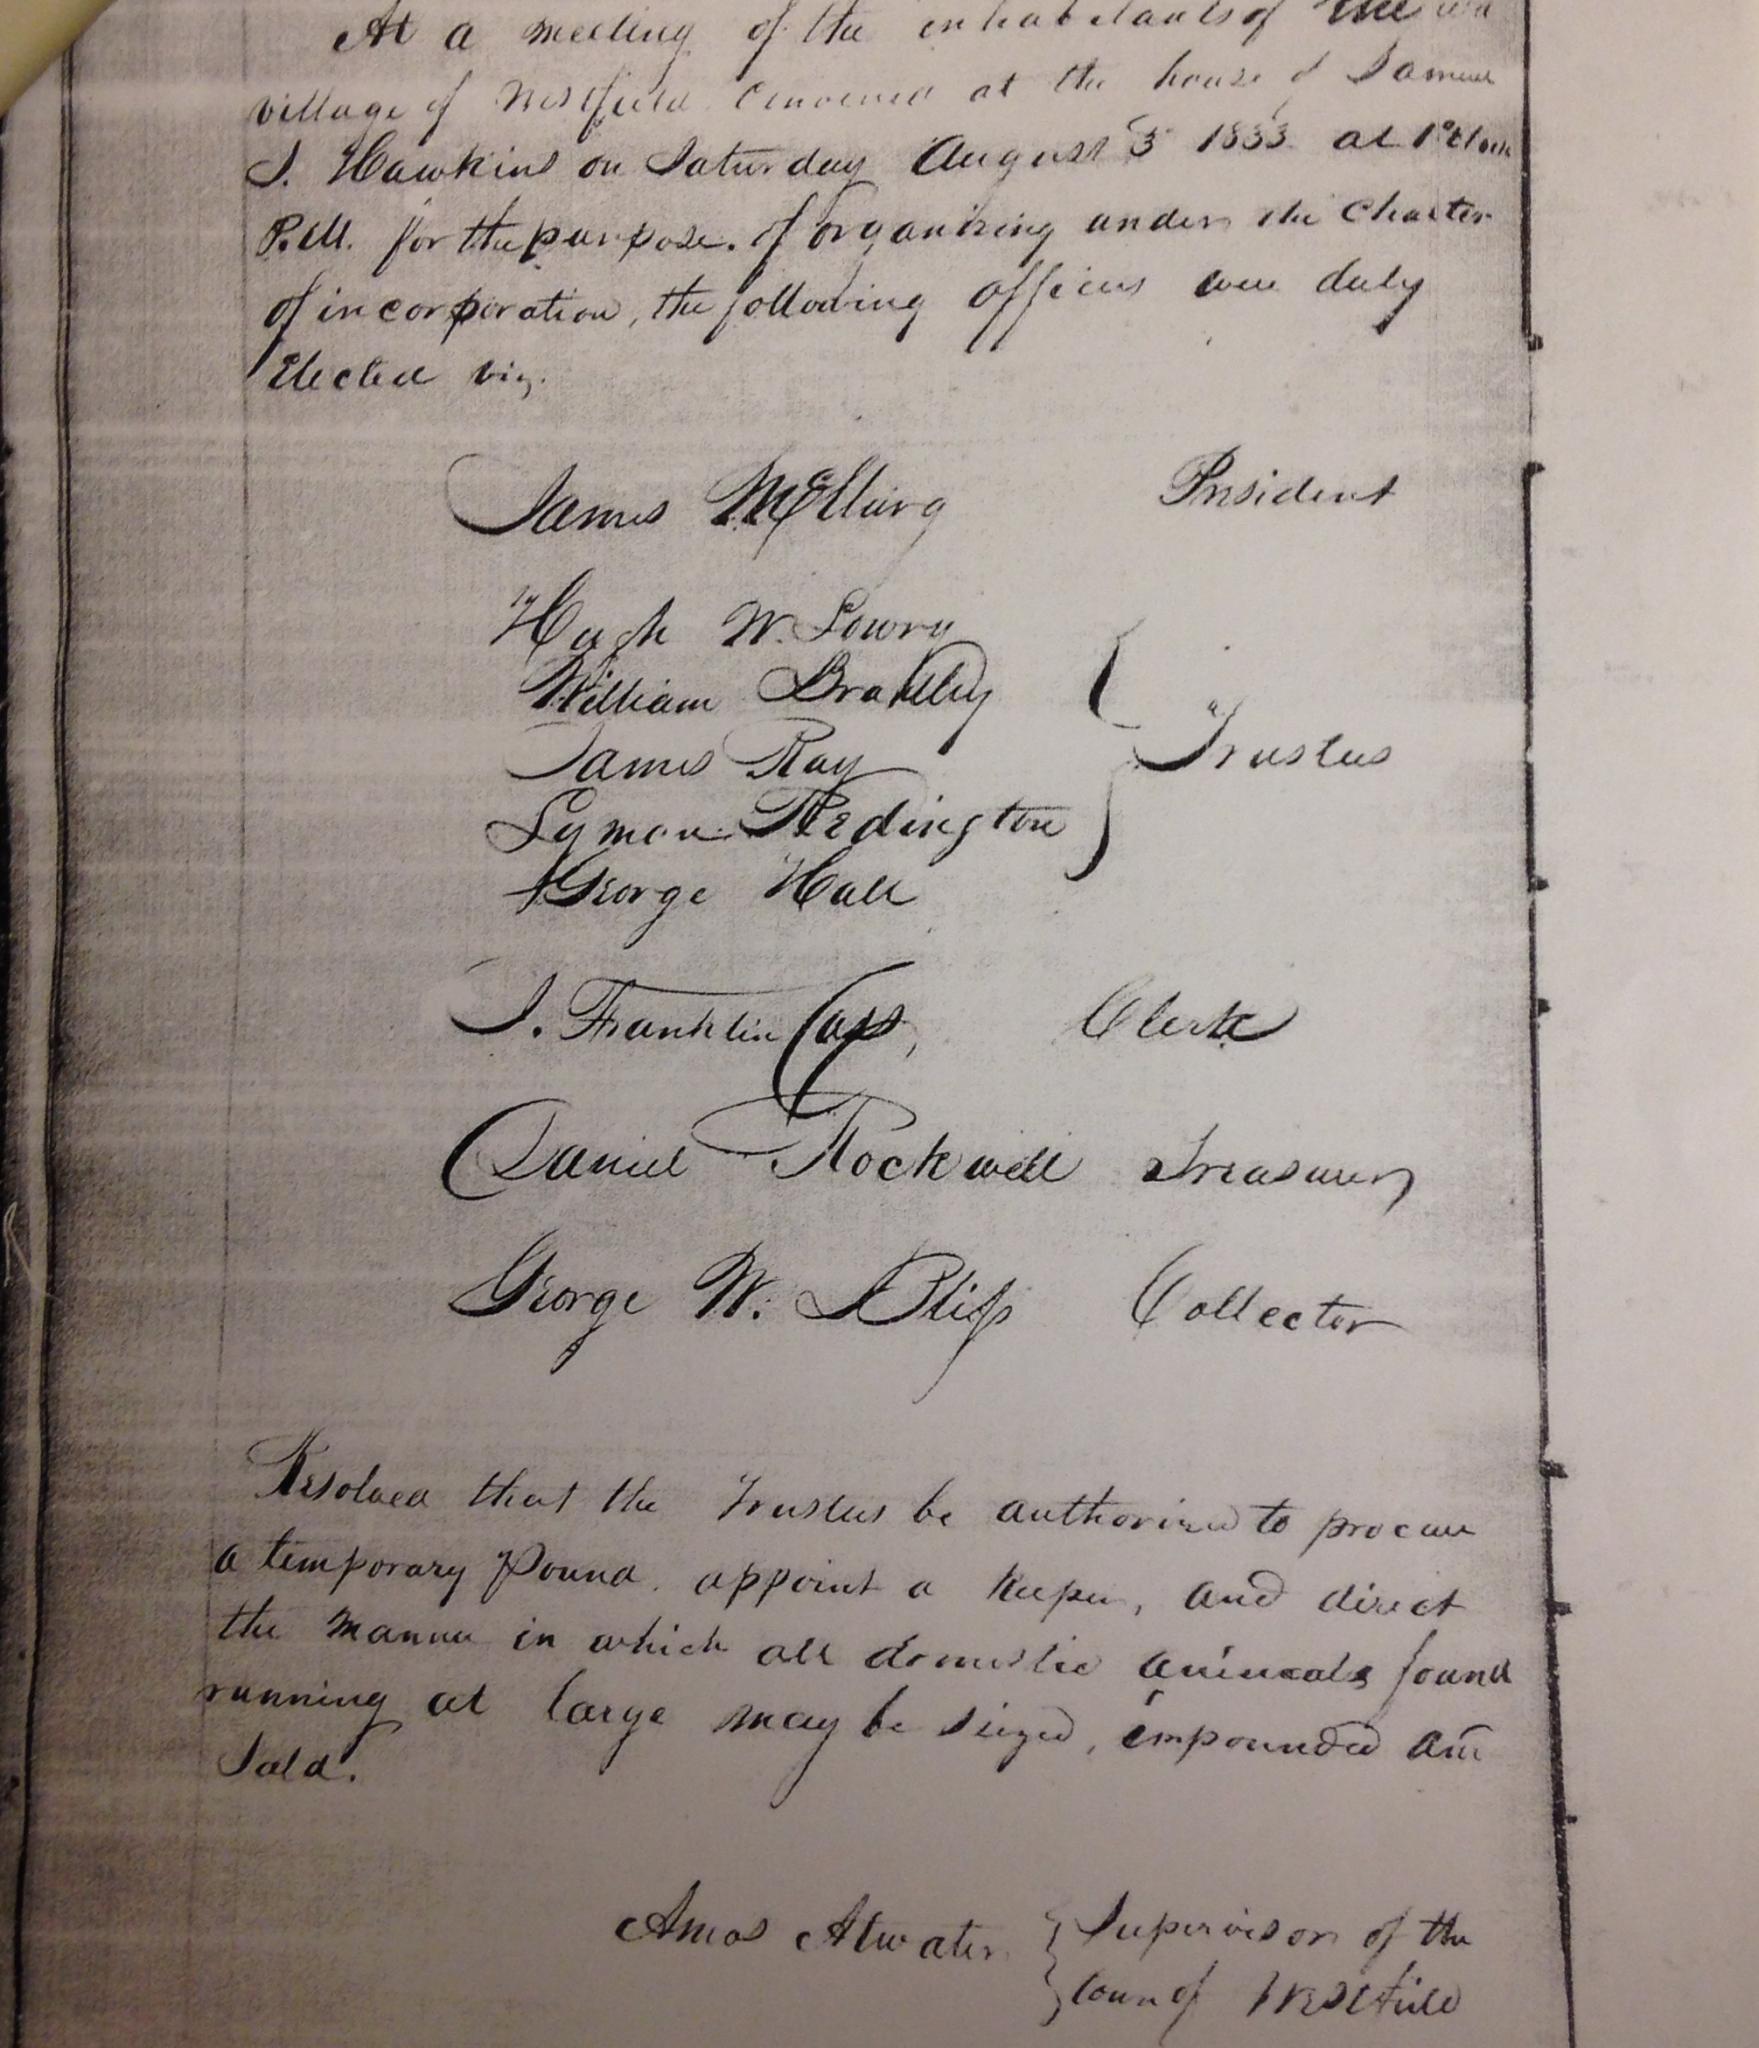 At a meeting of the inhabitants of the
village of Westfield convened at the house of Samuel
S. Hawkins on Saturday August 3 1833 at 1 oClock
P.M. for the purpose. of organizing under the Charter
of incorporation, the following officers were duly
Elected viz.
James McClurg President
Hugh W. Lowry
William Bradley
James Ray Trustees
Lyman Redington
George Hall
J. Franklin Cass, Clerk
Daniel Rockwell Treasurer
George W. Bliss Collector
Resolved that the Trustees be authorized to procure
a temporary Pound. appoint a keeper, and direct
the manner in which all domestic animals found
running at large may be siezed, impounded and
Sold.
Amos Atwater Supervisor of the
town of Westfield